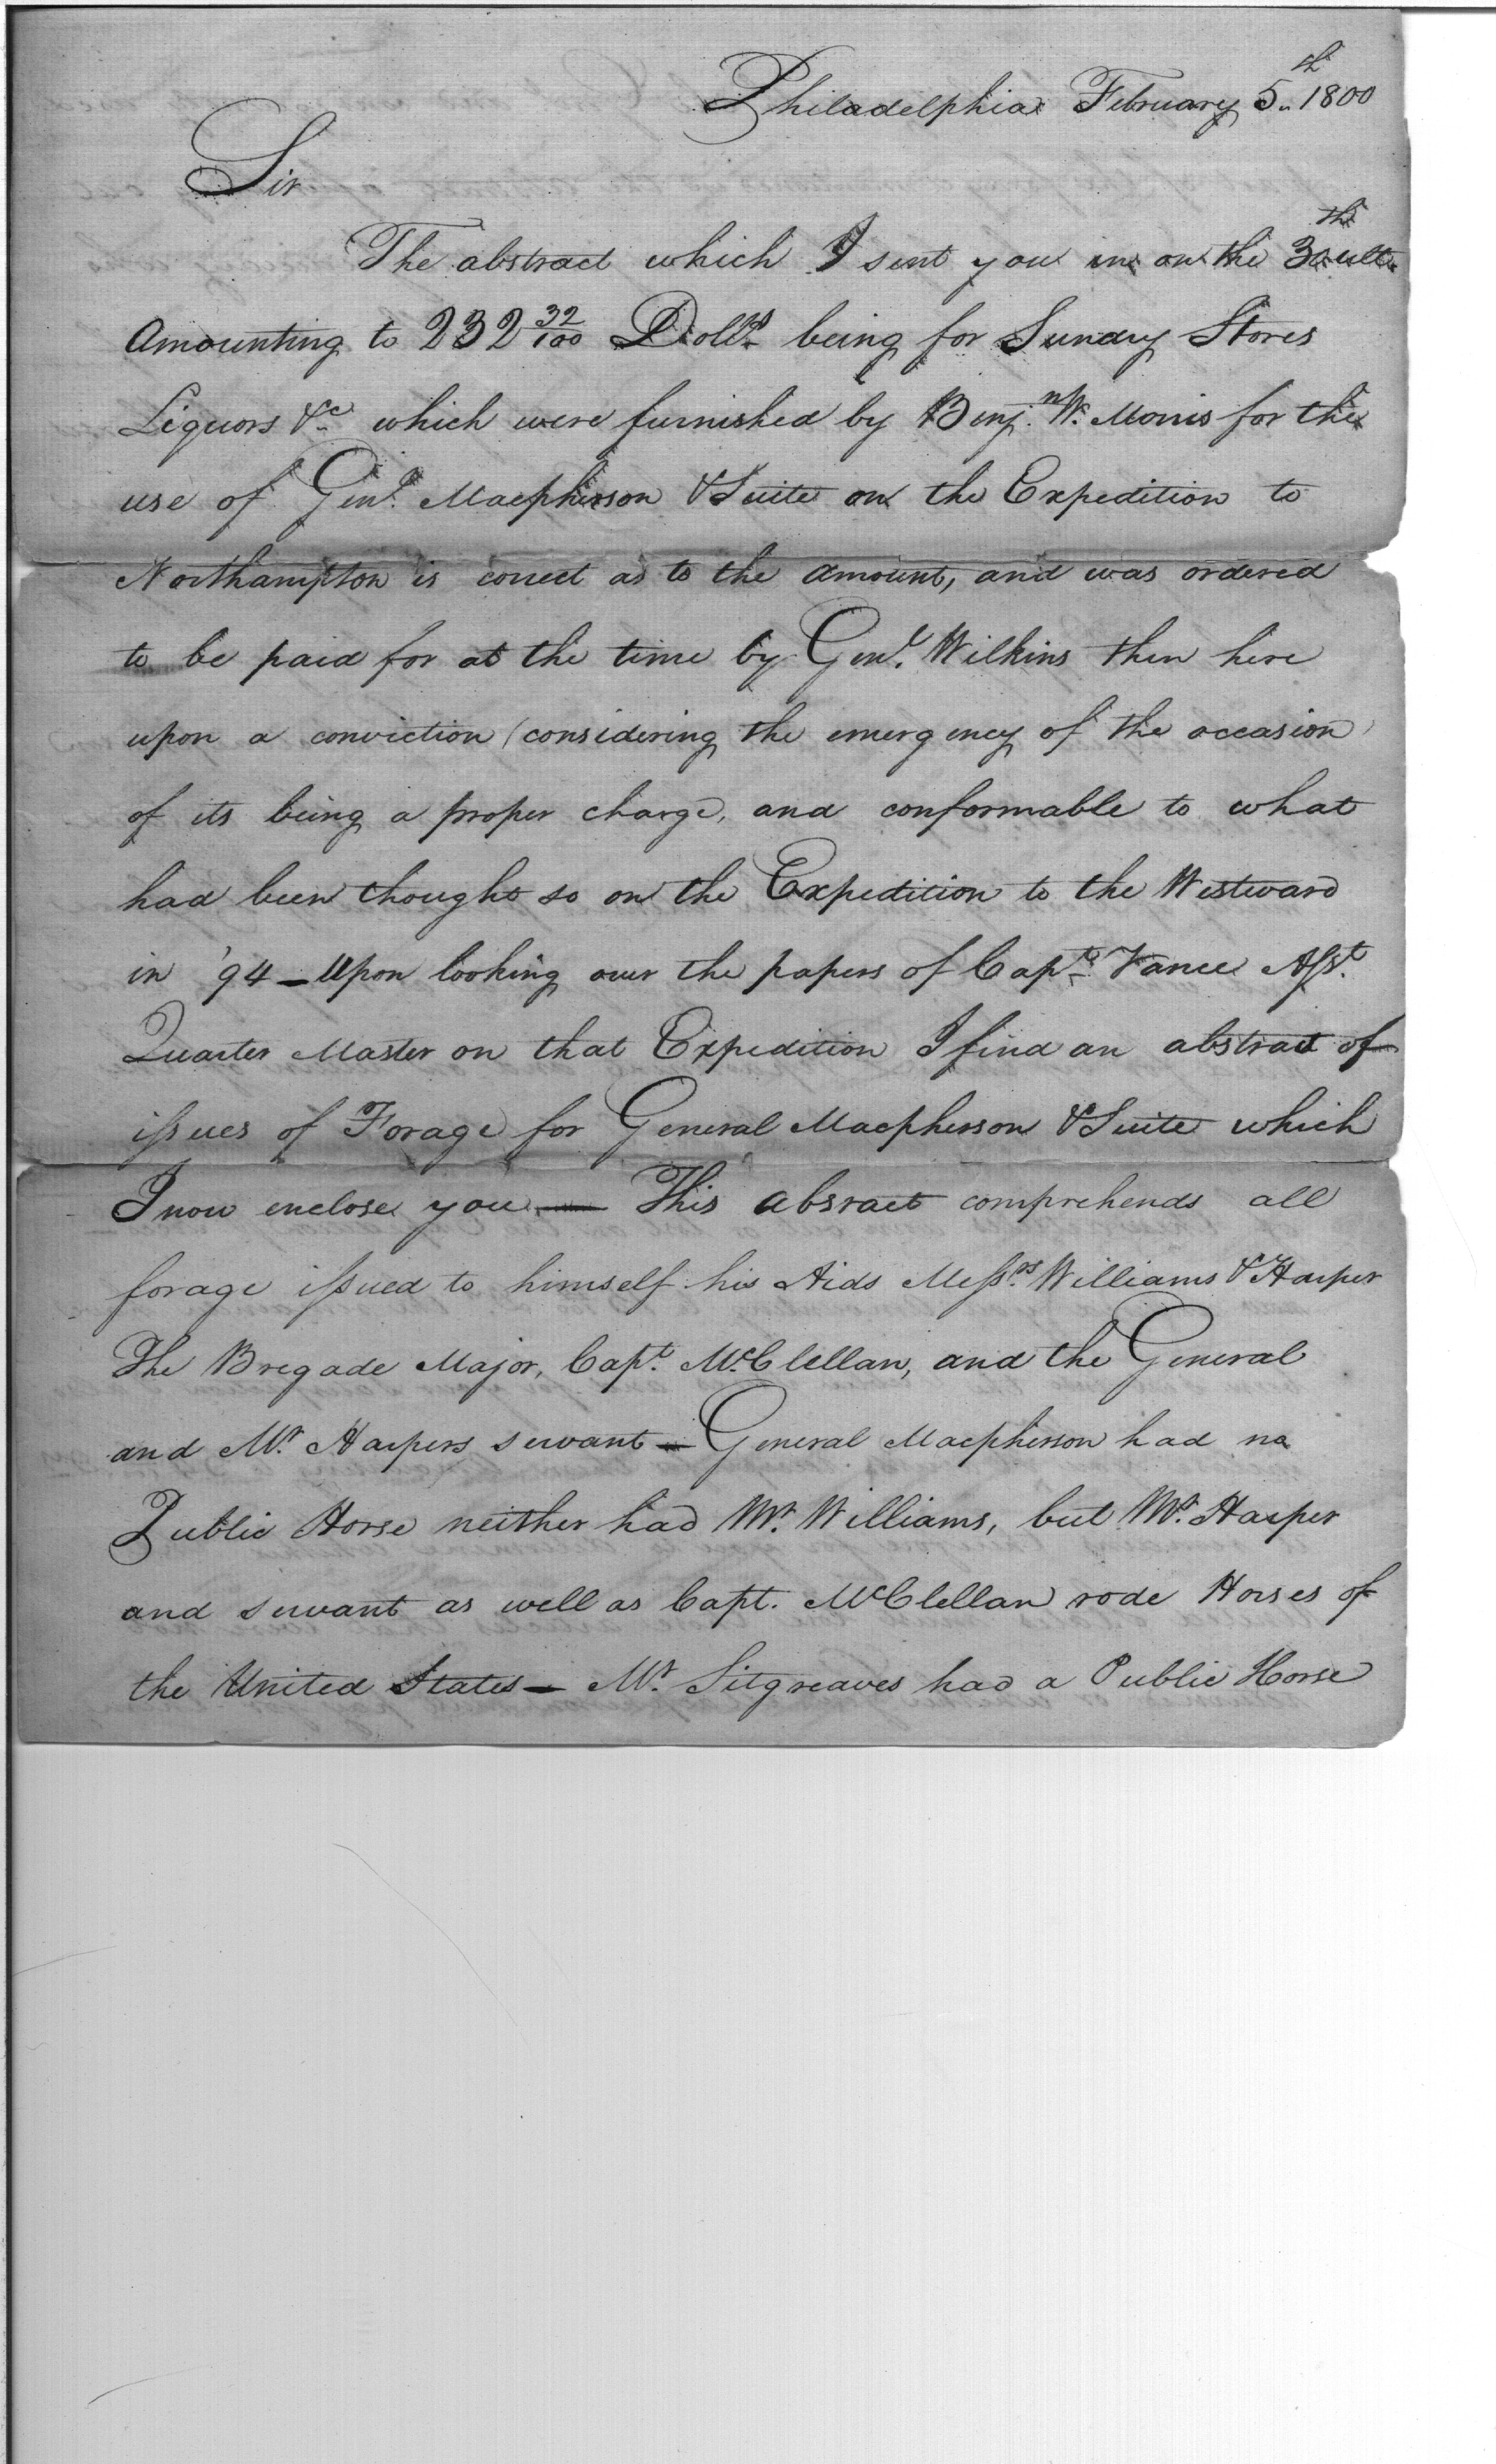 Philadelphia February 5th 1800
Sir
The abstract which I sent you in on the 30th ulto
Amounting to 232 32/100 Dolls being for Sundry Stores
Liquors &c which were furnished by Benjn W. Morris for the
use of Genl. Macpherson & Suite on the Expedition to
Northampton is correct as to the amount, and was ordered
to be paid for at the time by Genl. Wilkins then here
upon a conviction (considering the emergency of the occasion)
of its being a proper charge, and conformable to what
had been thought so on the Expedition to the Westward
in '94 – Upon looking over the papers of Capt. Vance Asst.
Quarter Master on that Expedition I find an abstract of
issues of Forage for General Macpherson & Suite which
I now enclose you — This absract comprehends all
forage issued to himself his Aids Messrs. Williams & Harper
The Brigade Major, Capt. McClellan, and the General
and Mr. Harpers servant – General Macpherson had no
Public Horse neither had Mr. Williams, but Mr. Harper
and servant as well as Capt. McClellan rode Horses of
the United States – Mr. Sitgreaves had a Public Horse